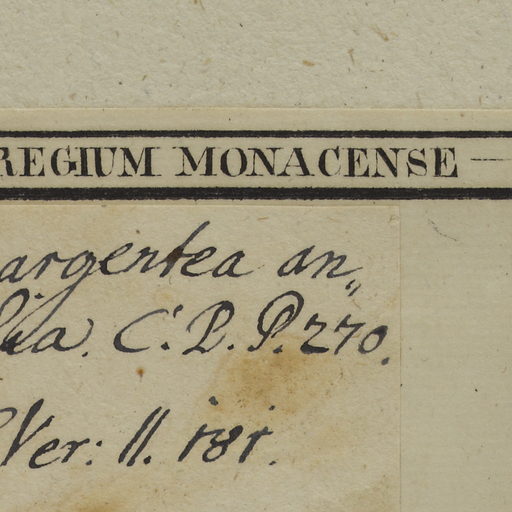 REGIUM MONACENSE
argentea an„
lia. C. B. P. 270.
Ver: II. 181.